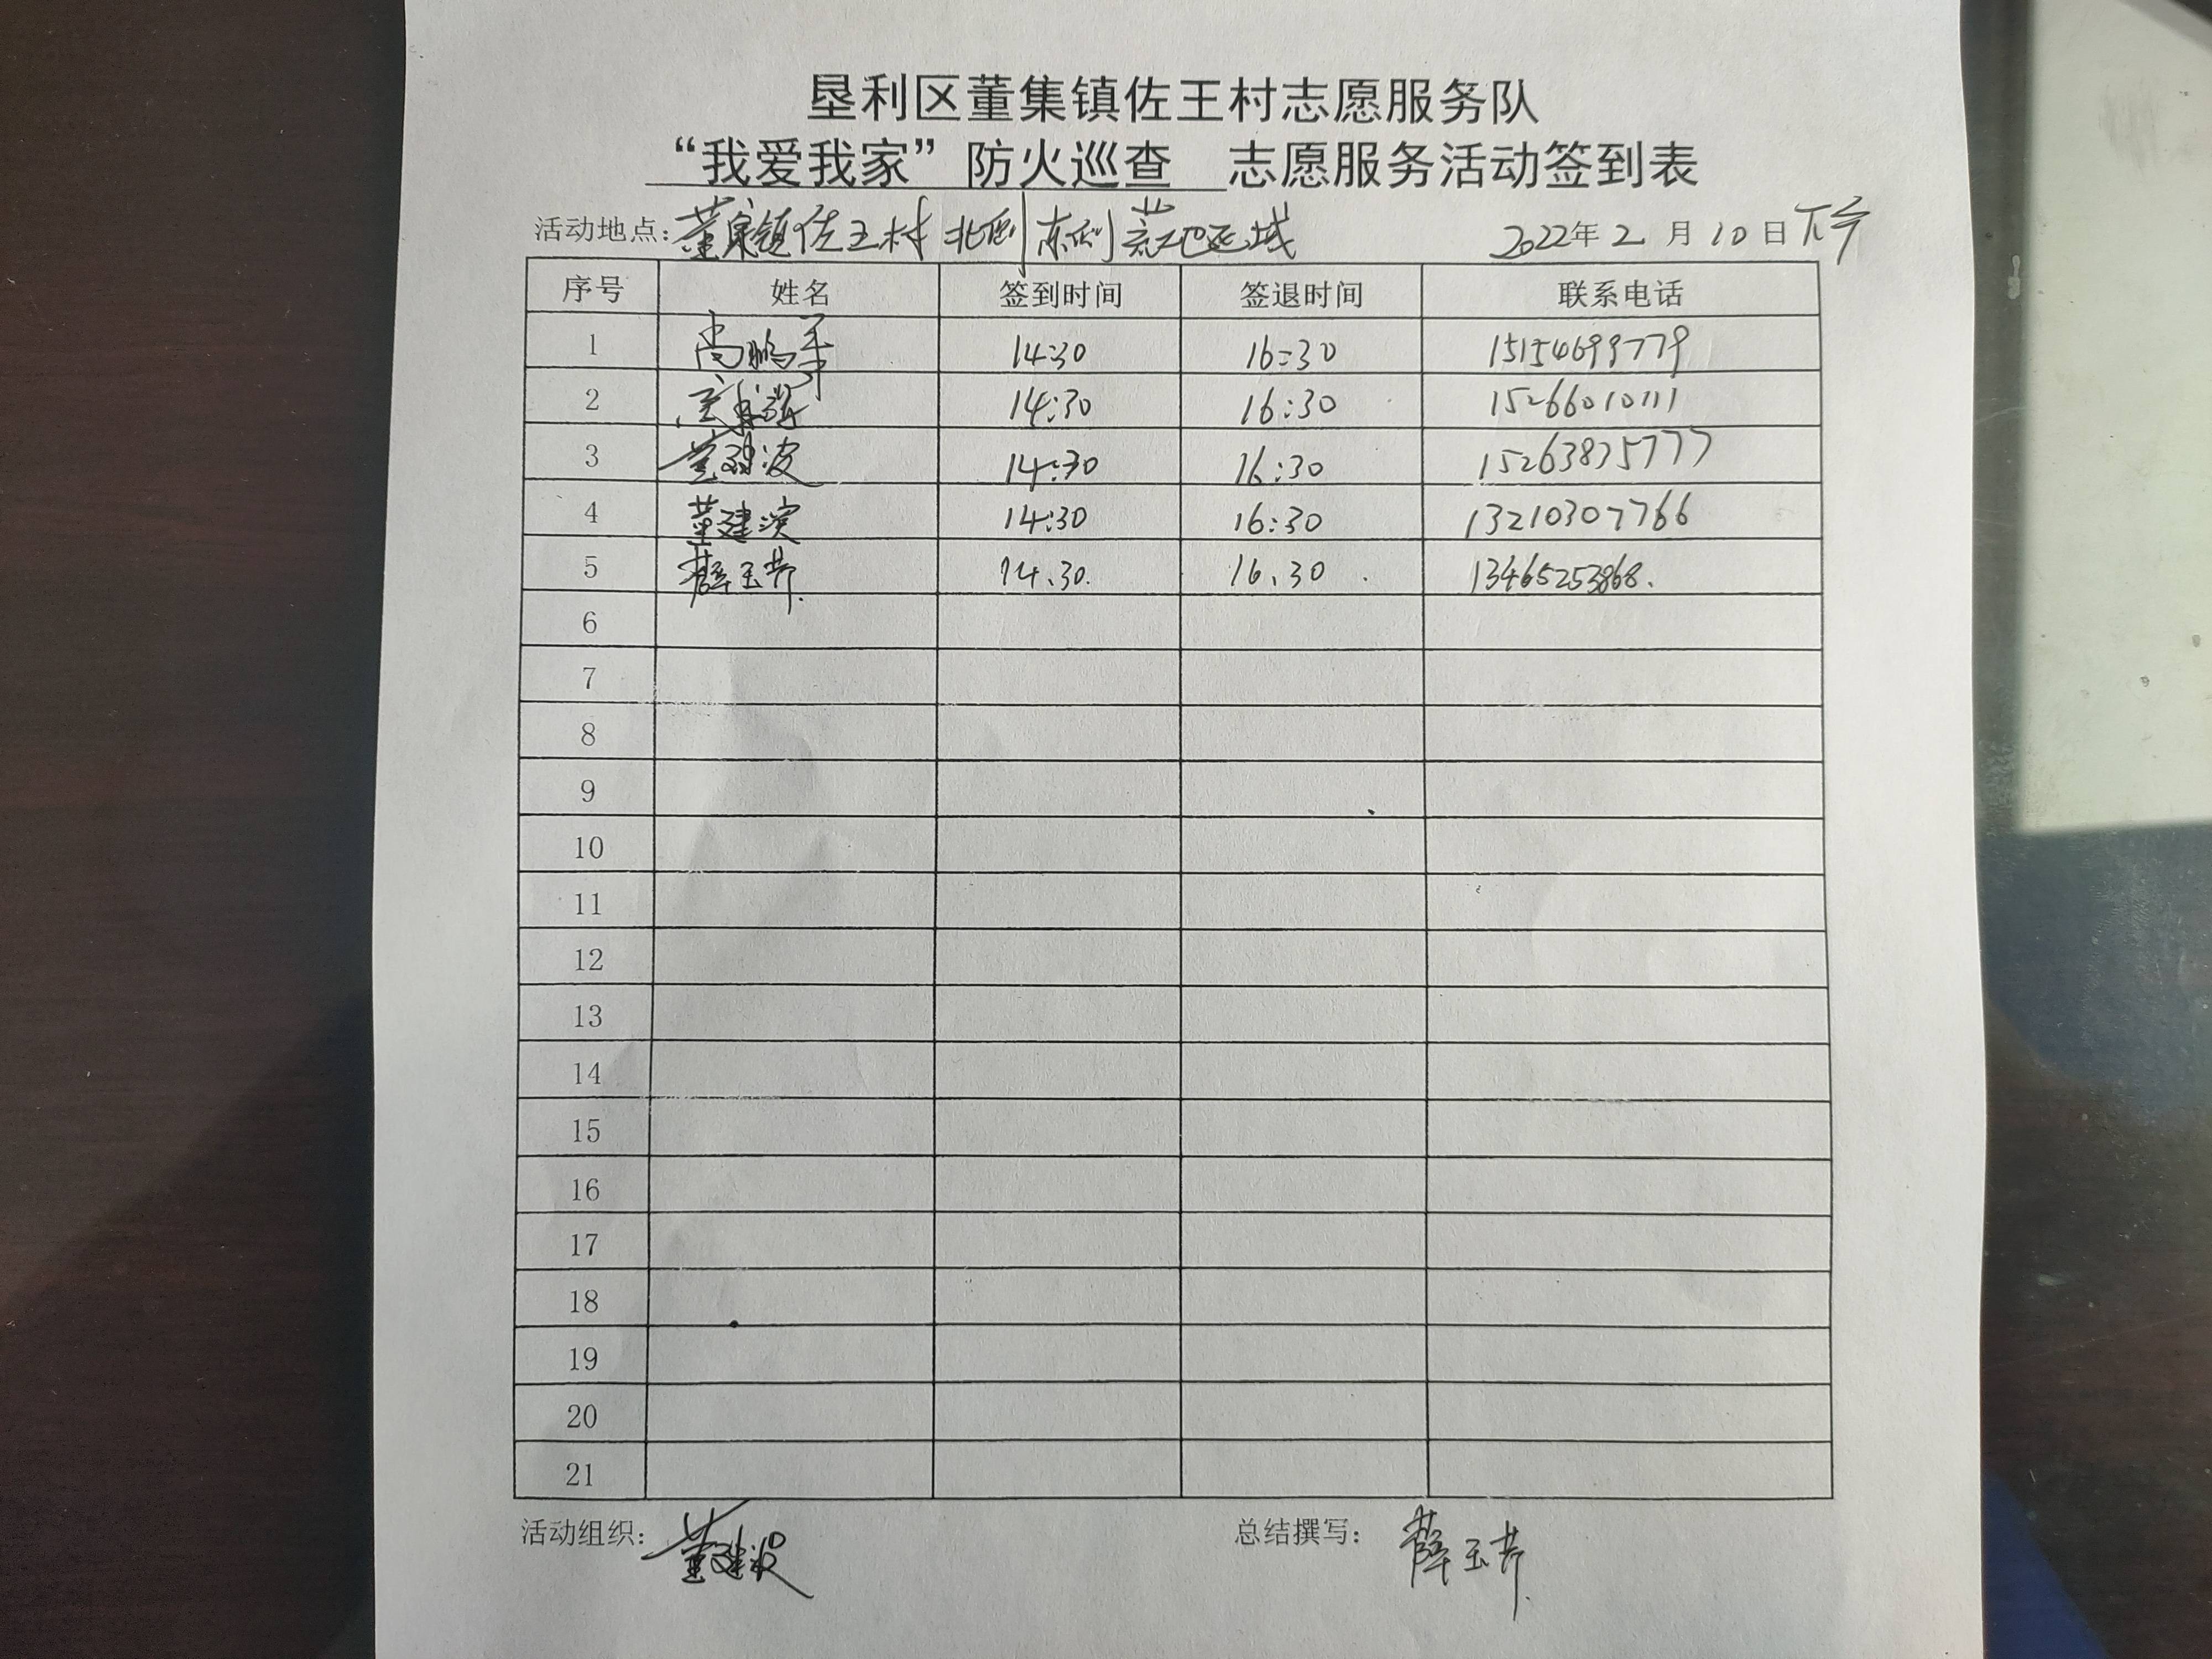 垦利区董集镇佐王村志愿服务队
“我爱我家”防火巡查 志愿服务活动签到表
活动地点：董集镇佐王村北侧东侧荒地区域 2022年2月10日下午
序号 姓名 签到时间 签退时间 联系电话
1 尚鹏军 14:30 16:30 15154699779
2 14:30 16:30 15266010111
3 董建波 14:30 16:30 15263835777
4 董建滨 14:30 16:30 13210307766
5 薛玉芹 14.30 16.30 13465253868.
6
7
8
9
10
11
12
13
14
15
16
17
18
19
20
21
活动组织：董建波 总结撰写：薛玉芹